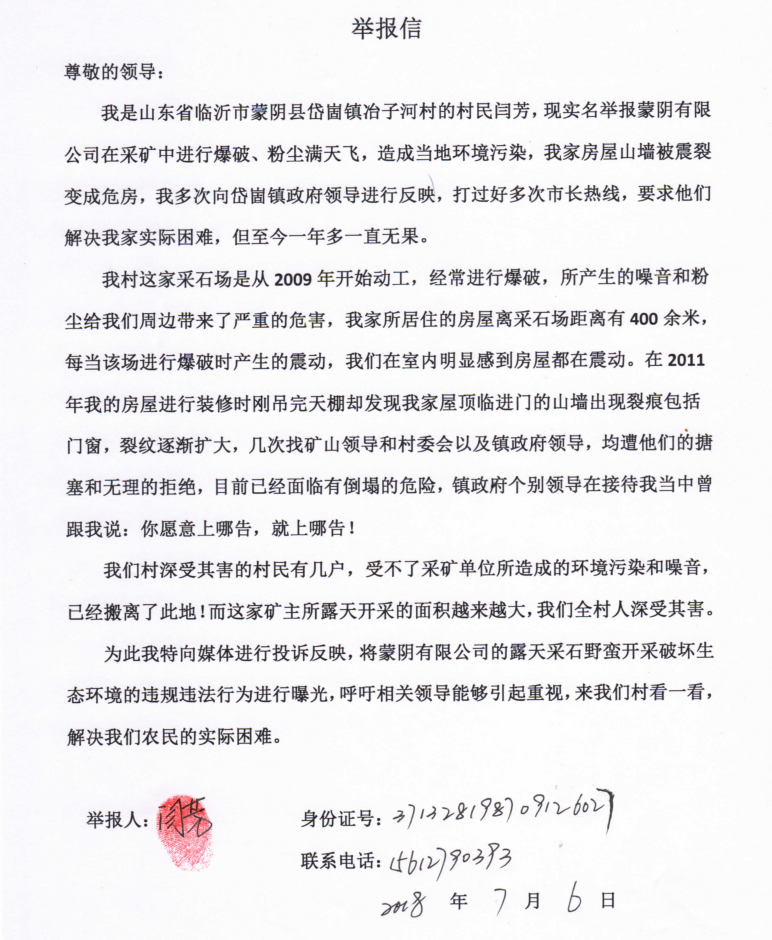 举报信
尊敬的领导：
我是山东省临沂市蒙阴县岱崮镇冶子河村的村民闫芳，现实名举报蒙阴有限
公司在采矿中进行爆破、粉尘满天飞，造成当地环境污染，我家房屋山墙被震裂
变成危房，我多次向岱崮镇政府领导进行反映，打过好多次市长热线，要求他们
解决我家实际困难，但至今一年多一直无果。
我村这家采石场是从 2009 年开始动工，经常进行爆破，所产生的噪音和粉
尘给我们周边带来了严重的危害，我家所居住的房屋离采石场距离有 400 余米，
每当该场进行爆破时产生的震动，我们在室内明显感到房屋都在震动。在 2011
年我的房屋进行装修时刚吊完天棚却发现我家屋顶临进门的山墙出现裂痕包括
门窗，裂纹逐渐扩大，几次找矿山领导和村委会以及镇政府领导，均遭他们的搪
塞和无理的拒绝，目前已经面临有倒塌的危险，镇政府个别领导在接待我当中曾
跟我说：你愿意上哪告，就上哪告！
我们村深受其害的村民有几户，受不了采矿单位所造成的环境污染和噪音，
已经搬离了此地！而这家矿主所露天开采的面积越来越大，我们全村人深受其害。
为此我特向媒体进行投诉反映，将蒙阴有限公司的露天采石野蛮开采破坏生
态环境的违规违法行为进行曝光，呼吁相关领导能够引起重视，来我们村看一看，
解决我们农民的实际困难。
举报人：闫芳 身份证号：371328198709126027
联系电话：
2018 年 7 月 6 日